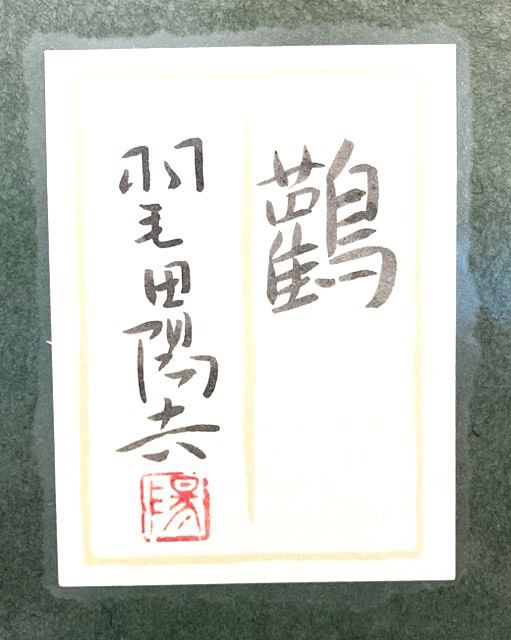 鸛
羽毛田陽吉
陽